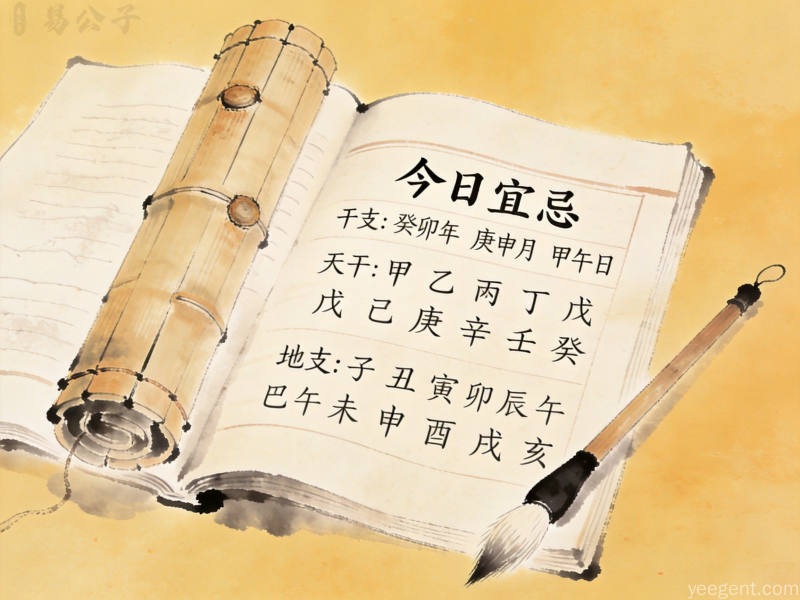 易公子
今日宜忌
干支: 癸卯年 庚申月 甲午日
天干: 甲 乙 丙 丁 戊
戊 己 庚 辛 壬 癸
地支: 子 丑 寅 卯 辰 午
巴 午 未 申 酉 戌 亥
yeegent.com